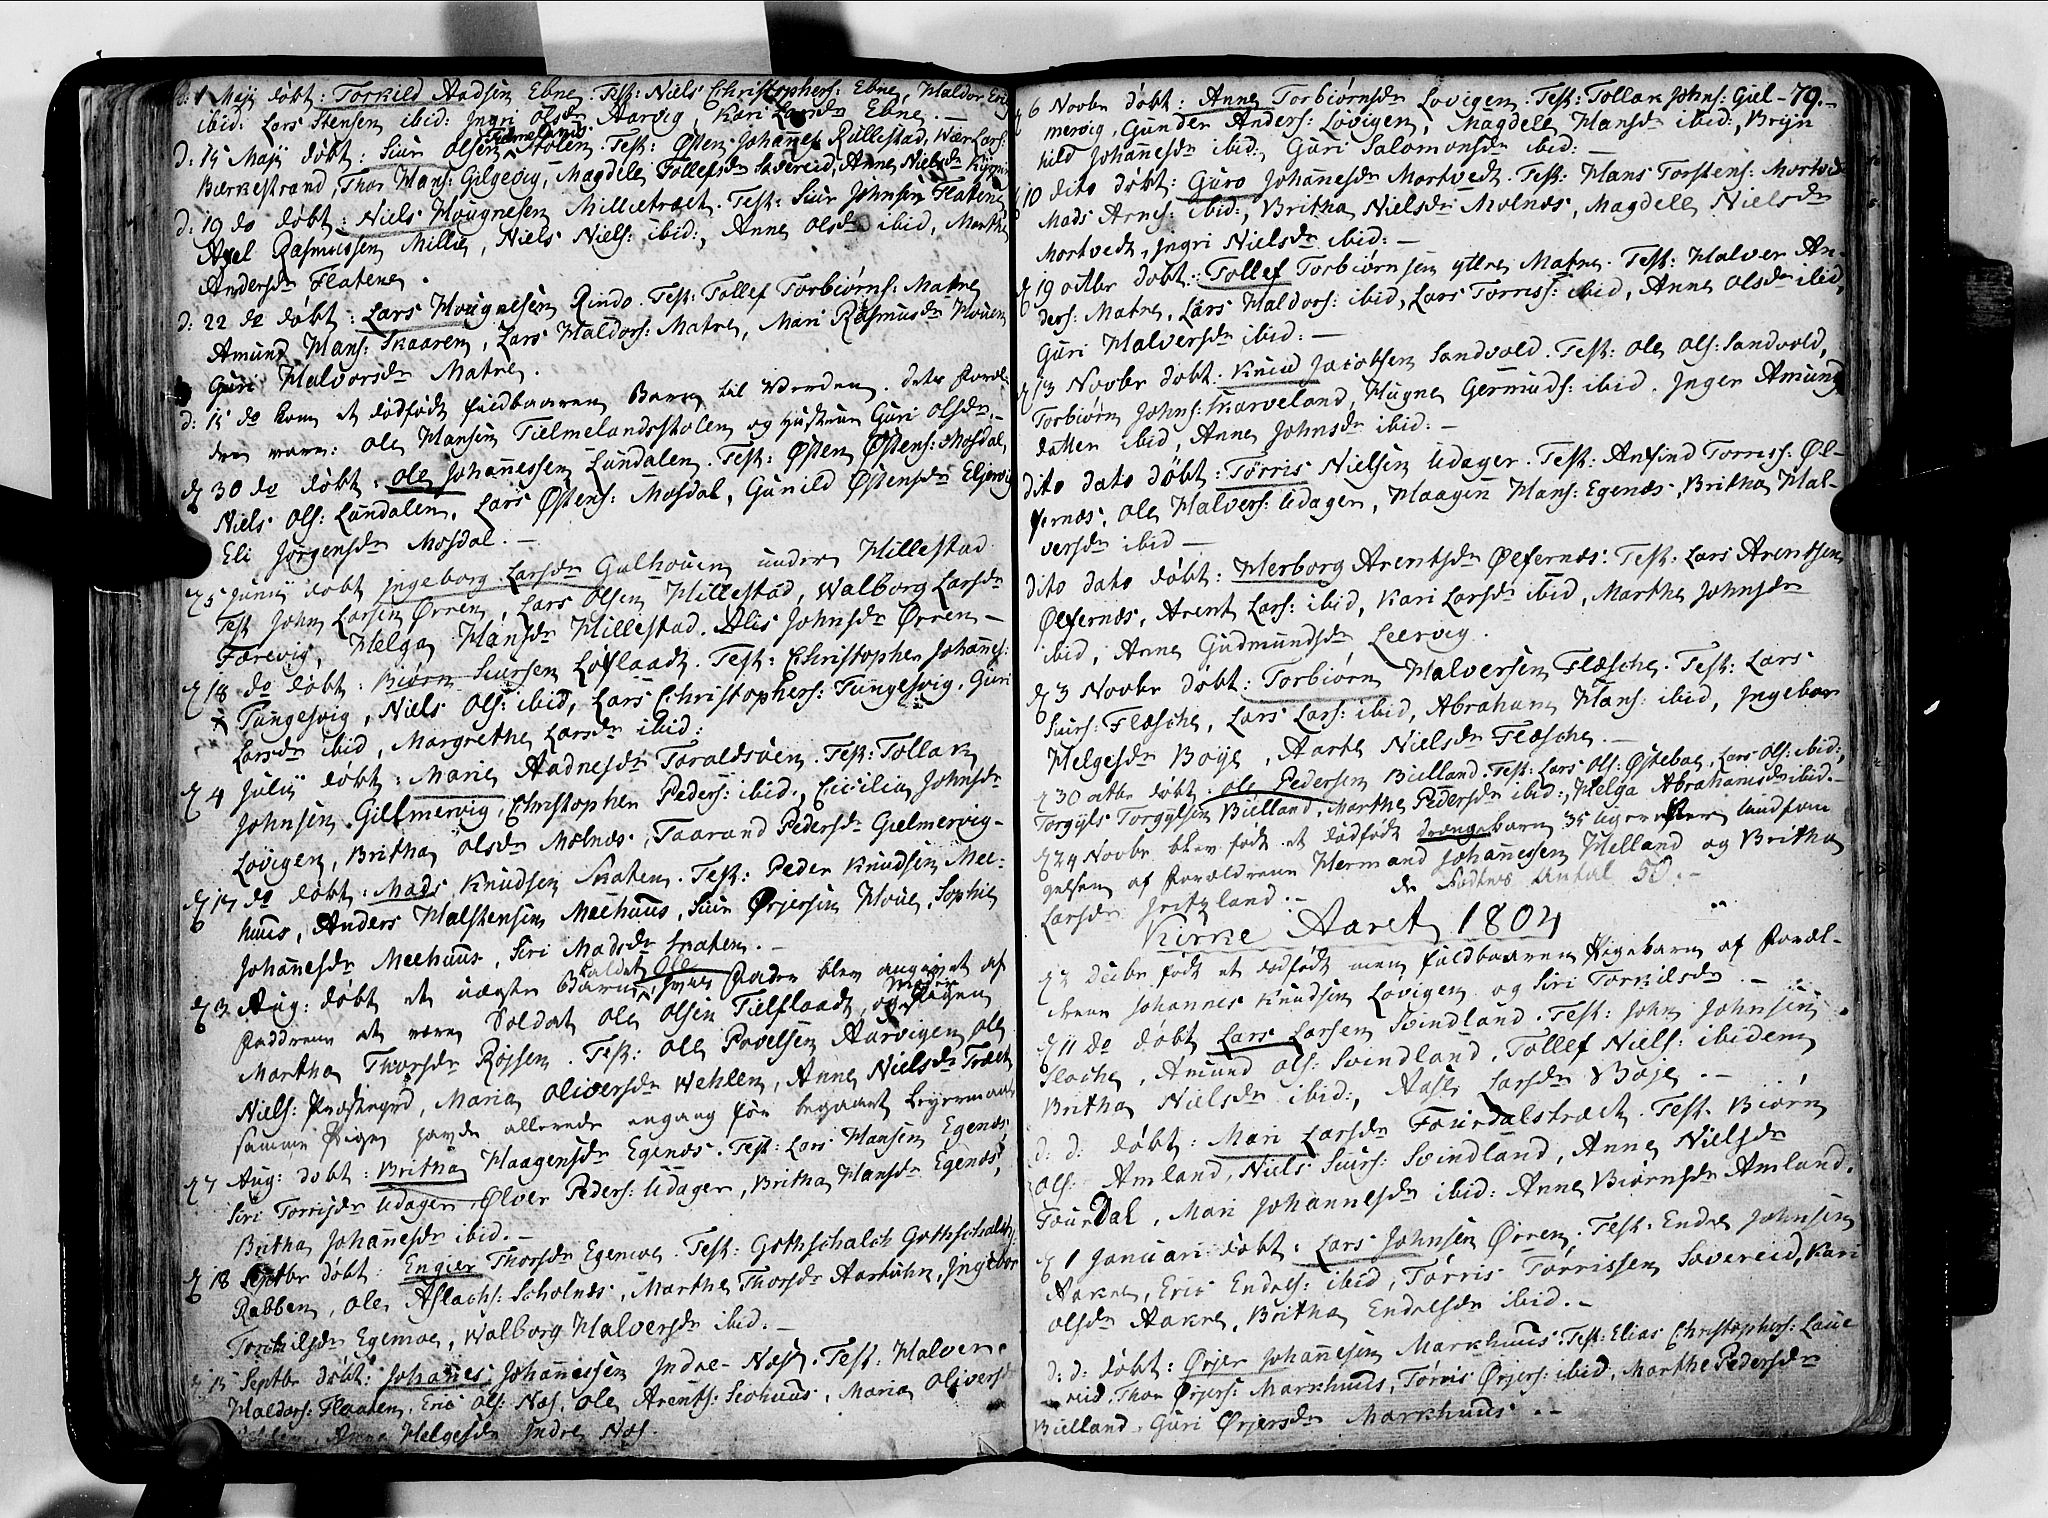 d: 1 Maji døbt: Torkild Aadsen Ebne. Test: Niels Christophers: Ebne, Haldor
ibid: Lars Stensen ibid: Ingri Olsdr Aarvig, Kari Larsdr Ebne. —
d: 15 Maji døbt: Siur Olsen Tielmelands Stolen. Test: Østen Johannes: Rullestad, Lars:
Bærkestrand, Thor Hans: Gilgevig, Magdele Tollefsdr Severeid, Anne Nielsdr
d: 19 do døbt: Niels Hougnesen Millietræet. Test: Siur Johnsen Flatene
Axel Rasmussen Millie, Niels Niels: ibid:, Anne Olsdr ibid, Marthe
Andersdr Flatene.
d: 22 do døbt: Lars Hougnesen Rindo. Test: Tollef Torbiørns: Matre
Amund Hans: Skaaren, Lars Haldors: Matre, Mari Rasmusdr Houen
Guri Halvorsdr Matre.
d: 15 do kom et dødfødt fuldbaaren Barn til Verden. dets Foræl-
dre vare: Ole Hansen Tielmelandsstolen og Hustrue Guri Olsdr. —
d 30 do døbt: Ole Johannessen Lundalen. Test: Østen Østens: Mosdal
Niels Ols: Lundalen, Lars Østens: Mosdal, Gunild Østensdr Eljervig
Eli Jørgensdr Mosdal. —
d 5 Junii døbt Ingeborg Larsdr Galhouen under Hillestad
Test John Larsen Ørren, Lars Olsen Hillestad, Walborg Larsdr
Færevig, Helga Hansdr Hillestad. Alis Johnsdr Ørren —
d 18 do døbt: Biørn Siursen Løflaadt. Test: Christopher Johannes:
Tungesvig, Niels Ols: ibid, Lars Christophers: Tungesvig, Guri
Larsdr ibid, Margrethe Larsdr ibid:
d 4 Julii døbt: Marie Aadnesdr Toraldsøen. Test: Tollak
Johnsen Gillmervig, Christopher Peders: ibid., Cicilia Johnsdr
Løvigen, Britha Olsdr Molnæs, Taarand Pedersdr Gielmervig —
d 17 do døbt: Mads Knudsen Skaten. Test: Peder Knudsen Mee-
huus, Anders Halstensen Meehuus, Siur Ørjersen Houe, Sophie
Johannesdr Meehuus, Siri Madsdr Skaten. —
d 3 Aug: døbt et uægte Barn kaldet Ole, hvis Fader blev angivet af
Fadderne at være Soldat Ole Olsen Tielflaadt, og Moder Pigen
Martha Thorsdr Røssen. Test: Ole Povelsen Aarvigen Ole
Niels: Præstegrd, Maria Oliversdr Wehlen, Anne Nielsdr Træet
samme Pige havde allerede engang før begaaet Leyermaal
d 7 Aug: døbt: Britha Haagensdr Egenæs. Test: Lars Hansen Egenæs
Siri Torrisdr Udager Ølver Peders: Udager, Britha Hansdr Egenæs,
Britha Johannesdr ibid. —
d 18 Septbr døbt: Engier Thorsdr Egemoe. Test: Gothschalch Gothschalchs:
Rabben, Ole Aslachs: Scholnæs, Marthe Thorsdr Aarhuhn, Ingebor
Torkilsdr Egemoe, Walborg Halversdr ibid. —
d 15 Septbr døbt: Johannes Johannessen Indre-Næs. Test: Halver
Haldors: Flaaten, Eric Ols: Næs, Ole Arents: Siohuus, Maria Olivers
Anne Helgesdr Indre Næs.
79. —
d 6 Novbr døbt: Anne Torbiørnsdr Løvigen. Test: Tollak Johns: Giel-
mervig, Gunder Anders: Løvigen, Magdele Hansdr ibid:, Bryn
hild Johannesdr ibid:, Guri Salomonsdr ibid: —
d 10 dito døbt: Guro Johannesdr Mortvedt. Test: Hans Torstens: Mortvedt
Mads Arnes: ibid:, Britha Nielsdr Molnæs, Magdele Nielsdr
Mortvedt, Ingri Nielsdr ibid: —
d 19 octbr døbt: Tollef Torbiørnsen yttre Matre. Test: Halver An-
ders: Matre, Lars Haldors: ibid, Lars Torriss: ibid, Anne Olsdr ibid,
Guri Halversdr ibid: —
d 13 Novbr døbt: Knud Jacobsen Sandvold. Test: Ole Ols: Sandvold,
Torbiørn Johns: Skarveland, Hugne Germunds: ibid. Inger Amunds
datter ibid, Anne Johnsdr ibid: —
dito dato døbt: Torris Nielsen Udager. Test: Anfind Torriss: Øl-
fernæs, Ole Halvers: Udager, Haagen Hans: Egenæs, Britha Hal-
versdr ibid —
dito dato døbt: Herborg Arentsdr Ølfernæs. Test: Lars Arentsen
Ølfernæs, Arent Lars: ibid, Kari Larsdr ibid, Marthe Johnsdr
ibid, Anne Gudmundsdr Leervig.
d 3 Novbr døbt: Torbiørn Halversen Flæsche. Test: Lars
Siurs: Flæsche, Lars Lars: ibid, Abraham Hans: ibid, Ingebor
Helgesdr Boye, Marte Nielsdr Flæsche. —
d 30 octbr døbt: Ole Pedersen Bielland. Test: Lars Ols: Østebøe, Lars Ols: ibid:,
Torgyls Torgylsen Bielland, Marthe Pedersdr ibid:, Helga Abrahamsdr ibid. —
d 24 Novbr blev født et dødfødt drængebarn 35 uger efter undfan
gelsen af Forældrene Hermand Johannessen Helland og Britha
Larsdr Fritzland. — de Fødtes Antal 50. —
Kirke Aaret 1804
d 2 decbr født et dødfødt men fuldbaaren Pigebarn af Foræl-
drene Johannes Knudsen Løvigen og Siri Torkilsdr —
d 11 do døbt Lars Larsen Svindland. Test: John Johnsen
Flæche, Amund Ols: Svindland, Tollef Niels: ibidem
Britha Nielsdr ibid:, Aase Larsdr Boje. —
d: d: døbt: Mari Larsdr Fourdalstræet. Test: Biørn
Ols: Amland, Niels Siurs: Svindland, Anne Nielsdr
Fourdal, Mari Johannesdr ibid: Anne Biørnsdr Amland.
d 1 Januari døbt: Lars Johnsen Ørren. Test: Endre Johnsen
Aakre, Eric Endres: ibid, Tørris Tørrissen Sævereid, Kari
Olsdr Aakre, Britha Endresdr ibid. —
d: d: døbt: Ørjer Johannesen Markhuus. Test: Elias Christophers: Laue
reid, Thor Ørjers: Markhuus, Tørris Ørjers: ibid, Marthe Pedersdr
Bielland, Guri Ørjersdr Markhuus. —